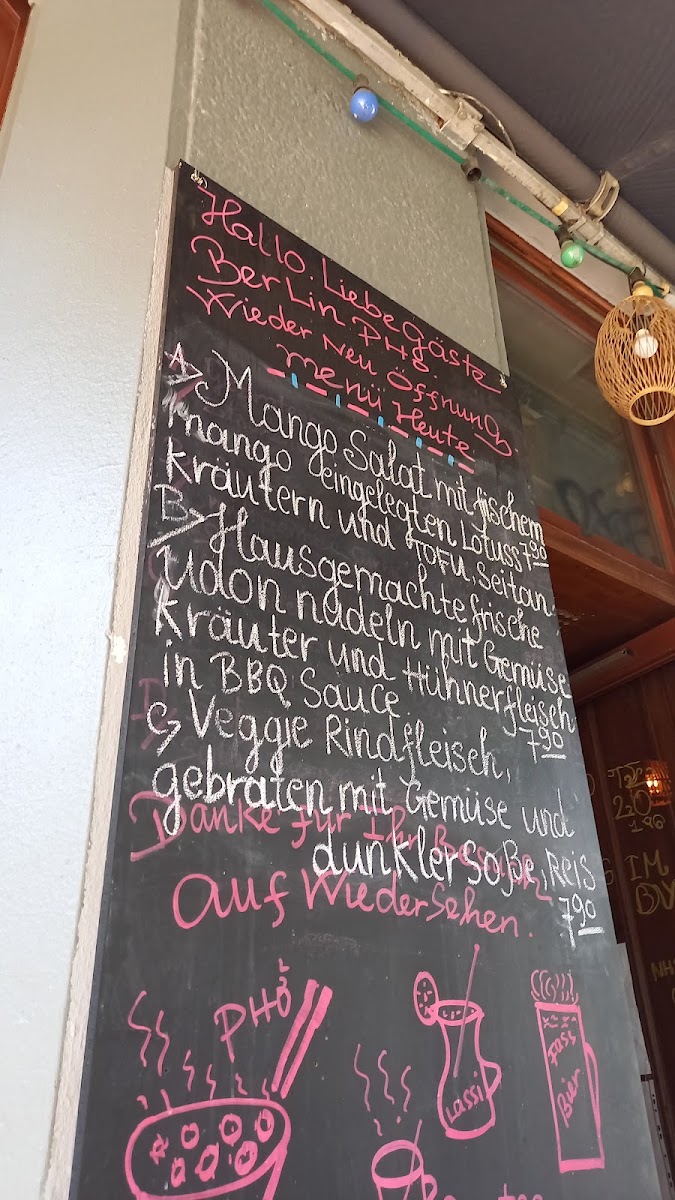 Hallo. Liebe Gäste
Berlin PHO.
Wieder Neu Öffnung.
menü Heute
A> Mango Salat mit frischem
mango eingelegten Lotuss 7,90
kräutern und TOFU, Seitan.
B> Hausgemachte frische
Udon nudeln mit Gemüse
kräuter und Hühnerfleisch
in BBQ Sauce 7,90
C> Veggie Rindfleisch,
gebraten mit Gemüse und
Danke für Ihr
dunkler Soße, Reis
7,90
auf Wiedersehen.
PHỞ
Lassi
Fass
Bier
IM